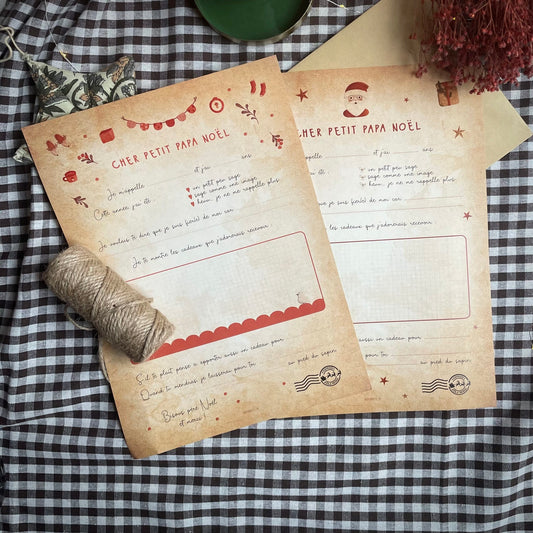 CHER PETIT PAPA NOËL
Je m'appelle et j'ai ans
Cette année j'ai été : un petit peu sage
sage comme une image
heuu.. je ne me rappelle plus
Je voulais te dire que je suis fier(e) de moi car
Je te montre les cadeaux que j'adorerais recevoir :
S'il te plaît pense à apporter aussi un cadeau pour
Quand tu viendras je laisserai pour toi au pied du sapin.
Bisous père Noël
et merci !
CHER PETIT PAPA NOËL
appelle et j'ai ans
un petit peu sage
sage comme une image
heuu.. je ne me rappelle plus
dire que je suis fier(e) de moi car
les cadeaux que j'adorerais recevoir :
aussi un cadeau pour
pour toi au pied du sapin.